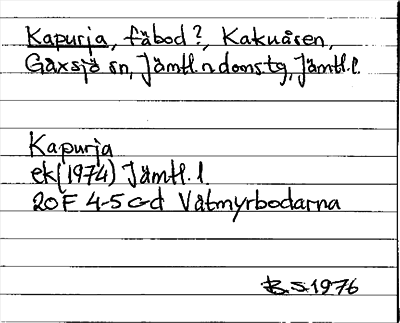 Kapurja, fäbod?, Kakuåsen,
Gåxsjö sn, Jämtl. n domstg, Jämtl. l.
Kapurja
ek (1974) Jämtl. l.
20F 4-5 c-d Våtmyrbodarna
B.S. 1976